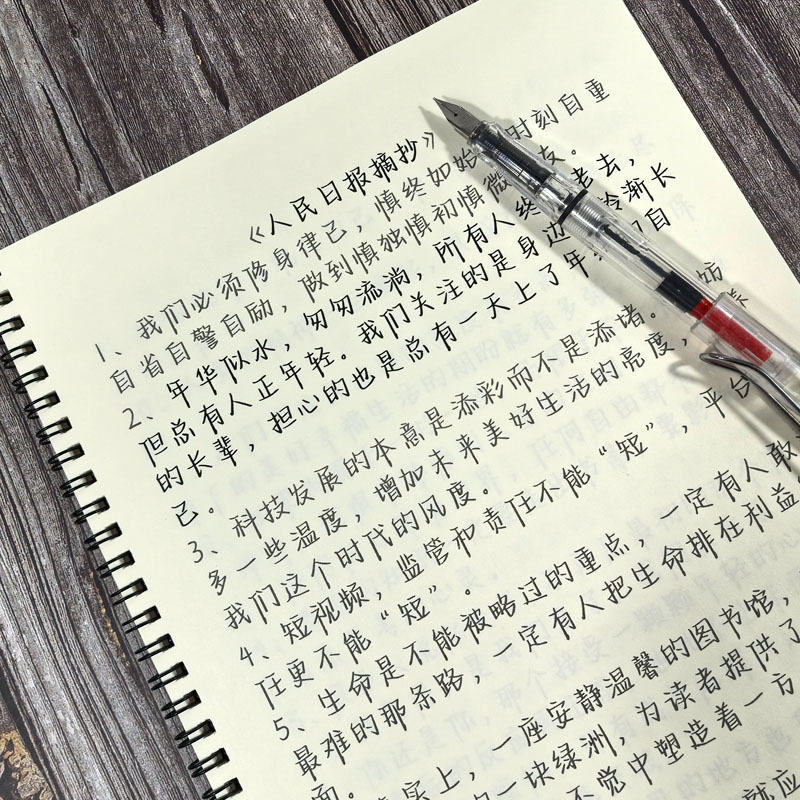 《人民日报摘抄》
1、我们必须修身律己，慎终如始 时刻自重
自省自警自励，做到慎独慎初慎微 友。
2、年华似水，匆匆流淌，所有人终 老去，
但总有人正年轻。我们关注的是身边 渐长
的长辈，担心的也是总有一天上了年 自
己。
3、科技发展的本意是添彩而不是添堵。 妨
多一些温度，增加未来美好生活的亮度，
我们这个时代的风度。
4、短视频，监管和责任不能“短”，平台
任更不能“短”。
5、生命是不能被略过的重点，一定有人敢
最难的那条路，一定有人把生命排在利益
面。
实上，一座安静温馨的图书馆，
的一块绿洲，为读者提供了
不觉中塑造着一方
就应